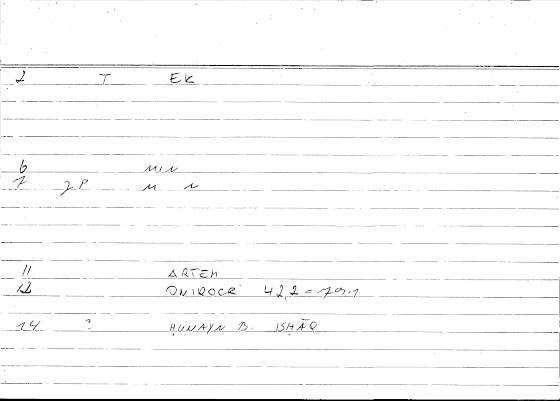 2 T EK
6 MIN
7 JP M N
11 ARTEM
12 ONIROCR 42,2 = 79.1
14 ? ḤUNAYN B. ISḤĀQ